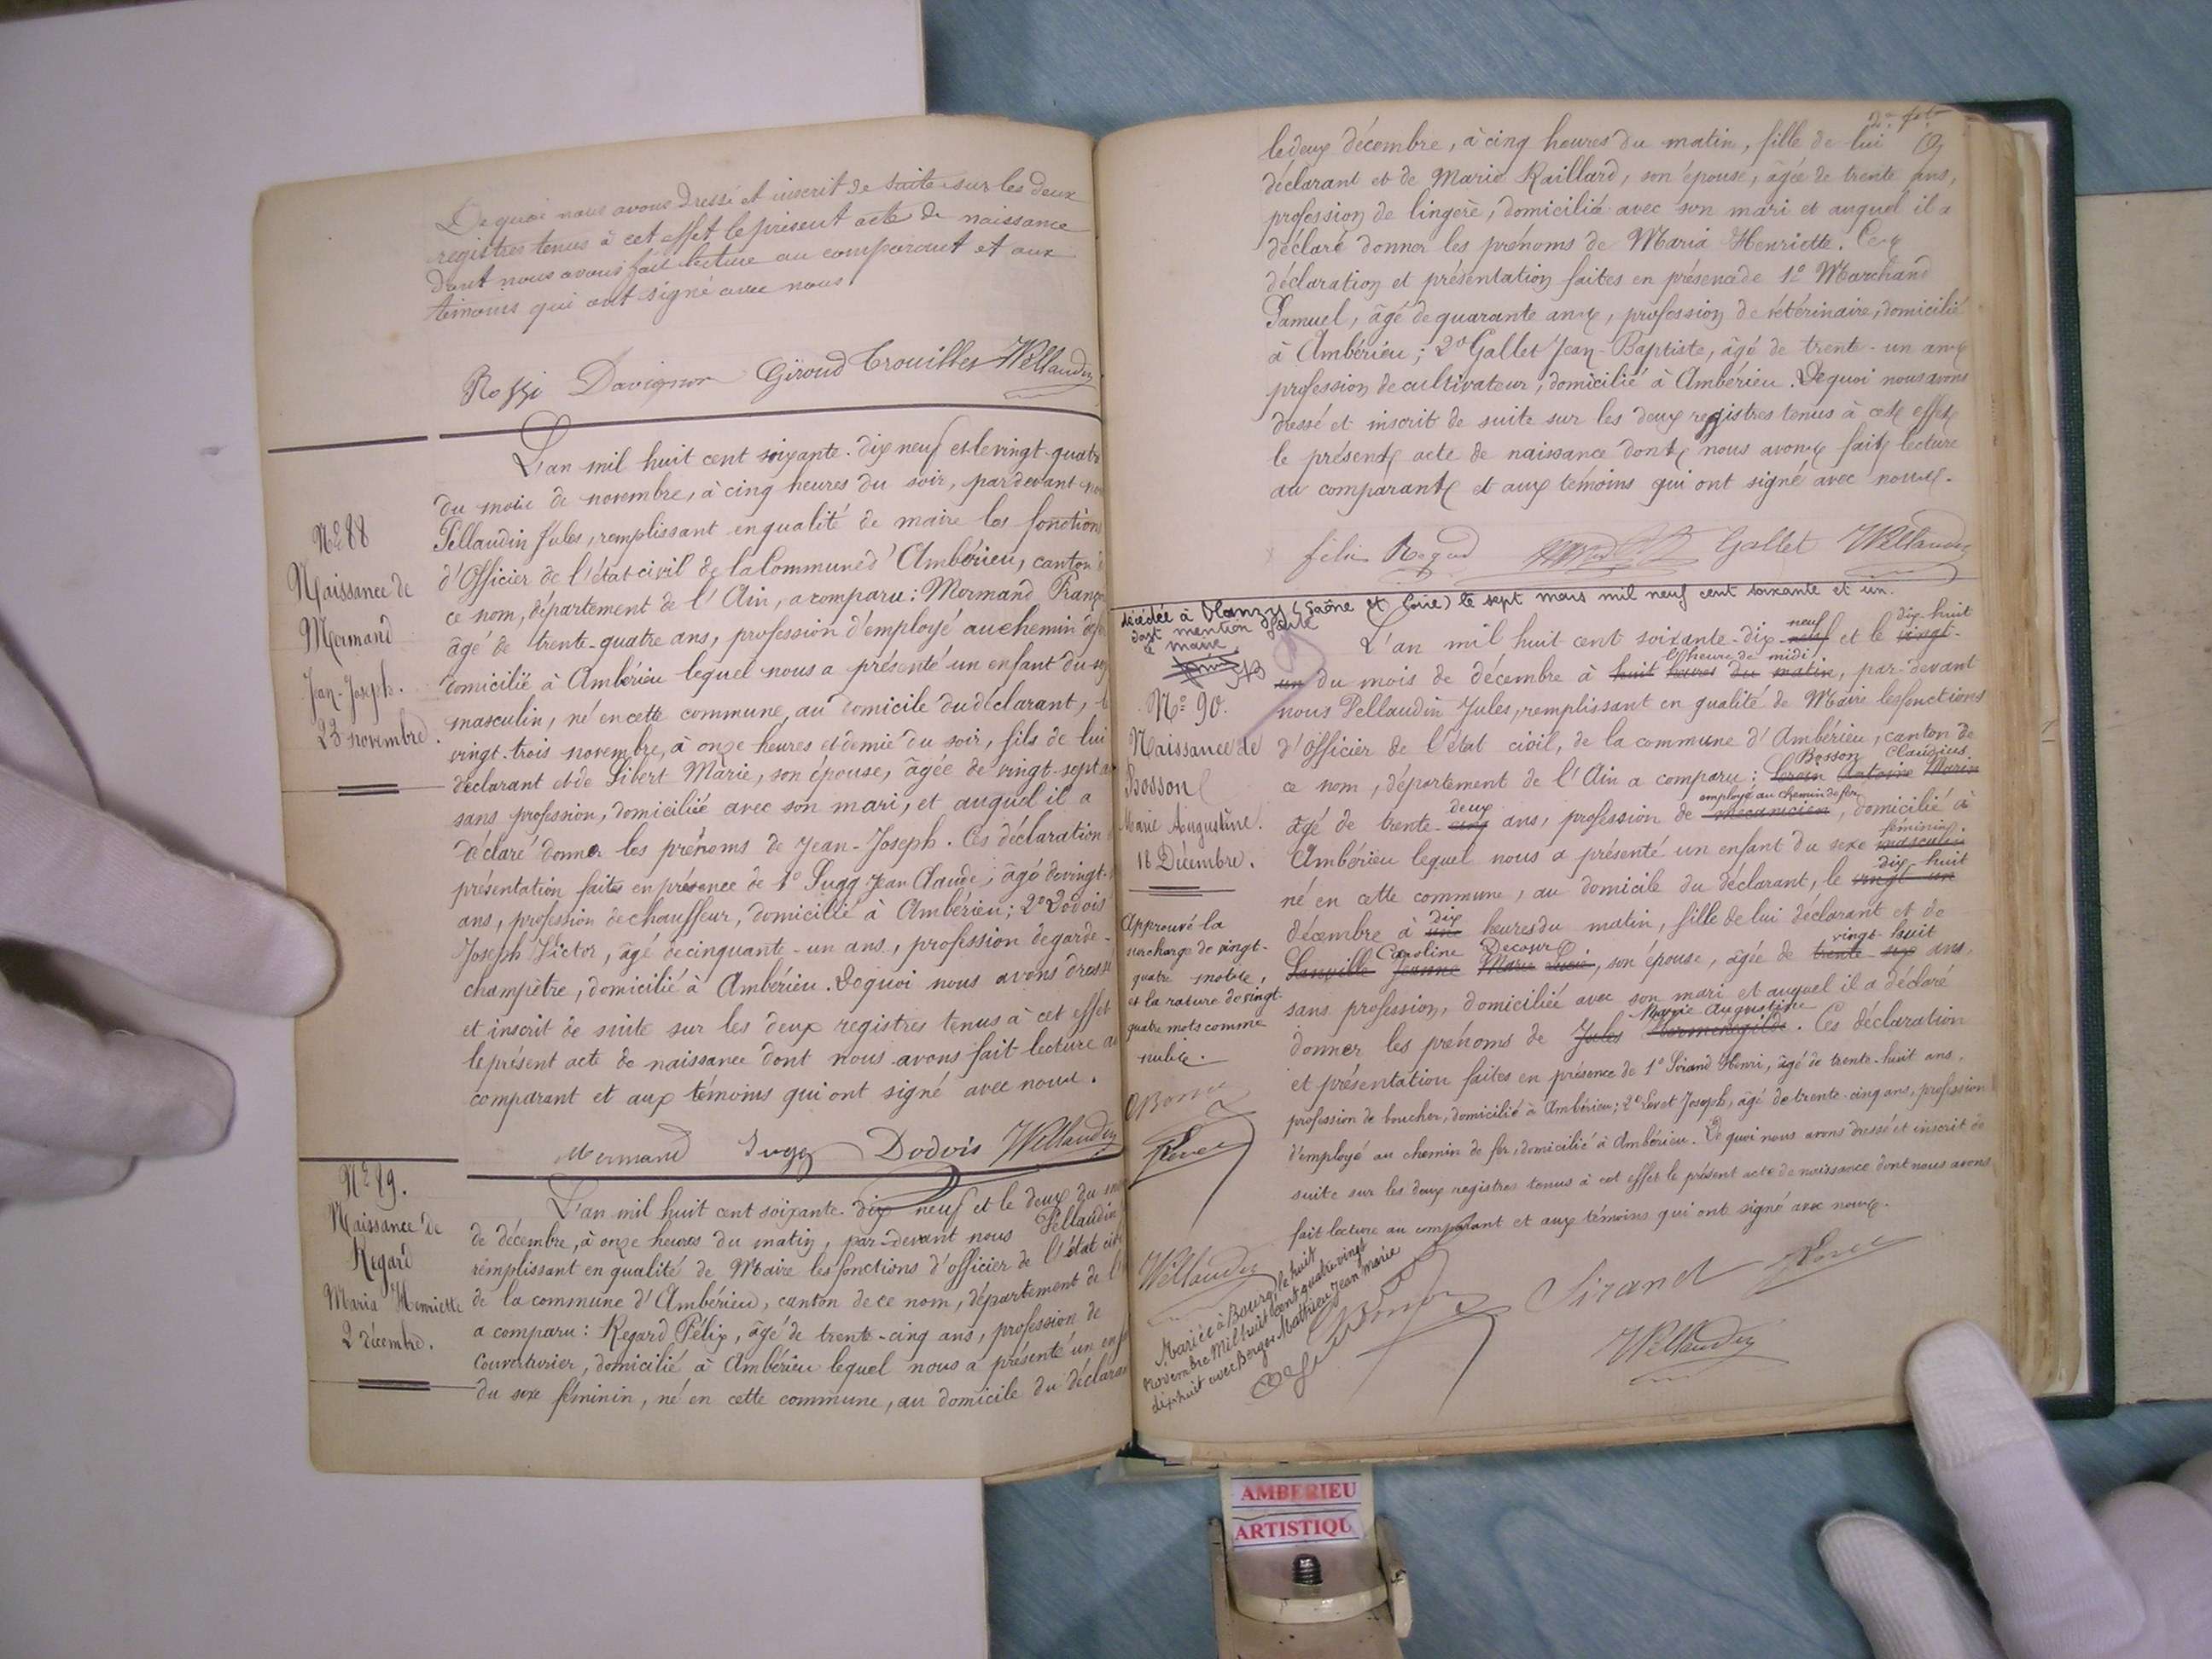 De quoi nous avons dressé et inscrit de suite sur les deux
registres tenus à cet effet le présent acte de naissance
dont nous avons fait lecture au comparant et aux
témoins qui ont signé avec nous.
Rossi Davignon Giroud Trouilles Pellaudin
L'an mil huit cent soixante-dix neuf et le vingt-quatre
du mois de novembre, à cinq heures du soir, par devant nous
Pellaudin Jules, remplissant en qualité de maire les fonctions
d'Officier de l'état civil de la Commune d'Ambérieu, canton de
ce nom, département de l'Ain, a comparu : Mermand Franç
âgé de trente-quatre ans, profession d'employé au chemin de fer
domicilié à Ambérieu lequel nous a présenté un enfant du sexe
masculin, né en cette commune, au domicile du déclarant, le
vingt-trois novembre, à onze heures et demie du soir, fils de lui
déclarant et de Libert Marie, son épouse, âgée de vingt-sept ans
sans profession, domiciliée avec son mari, et auquel il a
déclaré donner les prénoms de Jean-Joseph. Ces déclaration
présentation faites en présence de 1º Sugg Jean Claude, âgé de vingt-
ans, profession de chauffeur, domicilié à Ambérieu ; 2º Dodois
Joseph Victor, âgé de cinquante-un ans, profession de garde-
champêtre, domicilié à Ambérieu. De quoi nous avons dressé
et inscrit de suite sur les deux registres tenus à cet effet
le présent acte de naissance dont nous avons fait lecture au
comparant et aux témoins qui ont signé avec nous.
Nº 88
Naissance de
Mermand
Jean-Joseph.
23 novembre.
Mermand Sugg Dodois Pellaudin
Nº 89.
Naissance de
Regard
Maria Henriette
2 décembre.
L'an mil huit cent soixante-dix neuf et le deux du mois
de décembre, à onze heures du matin, par-devant nous Pellaudin
remplissant en qualité de Maire les fonctions d'officier de l'état civil
de la commune d'Ambérieu, canton de ce nom, département de l'
a comparu : Regard Félix, âgé de trente-cinq ans, profession de
Couverturier, domicilié à Ambérieu lequel nous a présenté un enf
du sexe féminin, né en cette commune, au domicile du déclarant
2e fet
le deux décembre, à cinq heures du matin, fille de lui
déclarant et de Marie Raillard, son épouse, âgée de trente ans,
profession de lingère, domiciliée avec son mari et auquel il a
déclaré donner les prénoms de Maria Henriette. Ces
déclaration et présentation faites en présence de 1º Marchand
Samuel, âgé de quarante ans, profession de vétérinaire, domicilié
à Ambérieu ; 2º Gallet Jean-Baptiste, âgé de trente-un ans
profession de cultivateur, domicilié à Ambérieu. De quoi nous avons
dressé et inscrit de suite sur les deux registres tenus à cet effet
le présent acte de naissance dont nous avons fait lecture
au comparant et aux témoins qui ont signé avec nous.
félix Regard Gallet Pellaudin
décédée à Blanzy (Saône et Loire) le sept mars mil neuf cent soixante et un.
dont mention faite
Le maire
Nº 90.
Naissance de
Bosson
Marie Augustine.
18 Décembre.
Approuvé la
surcharge de vingt-
quatre mots,
et la rature de vingt-
quatre mots comme
nuls.
neuf dix-huit
L'an mil huit cent soixante-dix-neuf et le vingt-
l'heure de midi
un du mois de décembre à huit heures du matin, par-devant
nous Pellaudin Jules, remplissant en qualité de Maire les fonctions
d'officier de l'état civil, de la commune d'Ambérieu, canton de
Bosson Claudius
ce nom, département de l'Ain a comparu : Antoine Marin
deux employé au chemin de fer
âgé de trente-cinq ans, profession de mécanicien, domicilié à
féminin.
Ambérieu lequel nous a présenté un enfant du sexe masculin
dix-huit
né en cette commune, au domicile du déclarant, le vingt-un
dix
décembre à une heures du matin, fille de lui déclarant et de
Caroline Decour vingt-huit
Jeanne Marie Lucie, son épouse, âgée de trente-six ans,
sans profession, domiciliée avec son mari et auquel il a déclaré
Marie Augustine
donner les prénoms de Jules Hermenegilde. Ces déclaration
et présentation faites en présence de 1º Sirand Henri, âgé de trente-huit ans,
profession de boucher, domicilié à Ambérieu ; 2º Levet Joseph, âgé de trente-cinq ans, profession
d'employé au chemin de fer, domicilié à Ambérieu. De quoi nous avons dressé et inscrit de
suite sur les deux registres tenus à cet effet le présent acte de naissance dont nous avons
fait lecture au comparant et aux témoins qui ont signé avec nous.
CBosson
Levet
Pellaudin
Mariée à Bourg, le huit
novembre Mil huit cent quatre vingt
dix-huit avec Berger Mathieu Jean Marie
CBosson Sirand Levet
Pellaudin
AMBERIEU
ARTISTIQU